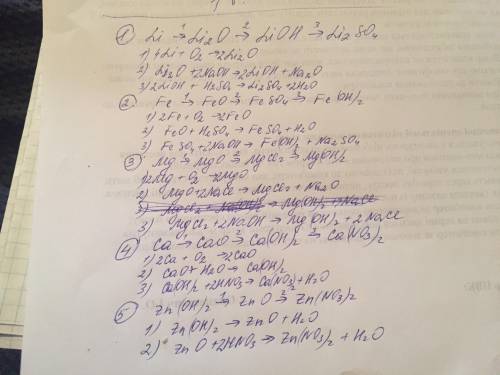 ① Li →¹ Li₂O →² LiOH →³ Li₂SO₄
1) 4Li + O₂ → 2Li₂O
2) Li₂O + 2NaOH → 2LiOH + Na₂O
3) 2LiOH + H₂SO₄ → Li₂SO₄ + 2H₂O
② Fe →¹ FeO →² FeSO₄ →³ Fe(OH)₂
1) 2Fe + O₂ → 2FeO
2) FeO + H₂SO₄ → FeSO₄ + H₂O
3) FeSO₄ + 2NaOH → Fe(OH)₂ + Na₂SO₄
③ Mg →¹ MgO →² MgCl₂ →³ Mg(OH)₂
1) 2Mg + O₂ → 2MgO
2) MgO + 2NaCl → MgCl₂ + Na₂O
3) MgCl₂ + Na(OH)₂ → Mg(OH)₂ + NaCl
3) MgCl₂ + 2NaOH → Mg(OH)₂ + 2NaCl
④ Ca →¹ CaO →² Ca(OH)₂ →³ Ca(NO₃)₂
1) 2Ca + O₂ → 2CaO
2) CaO + H₂O → Ca(OH)₂
3) Ca(OH)₂ + 2HNO₃ → Ca(NO₃)₂ + H₂O
⑤ Zn(OH)₂ →¹ ZnO →² Zn(NO₃)₂
1) Zn(OH)₂ → ZnO + H₂O
2) ZnO + 2HNO₃ → Zn(NO₃)₂ + H₂O